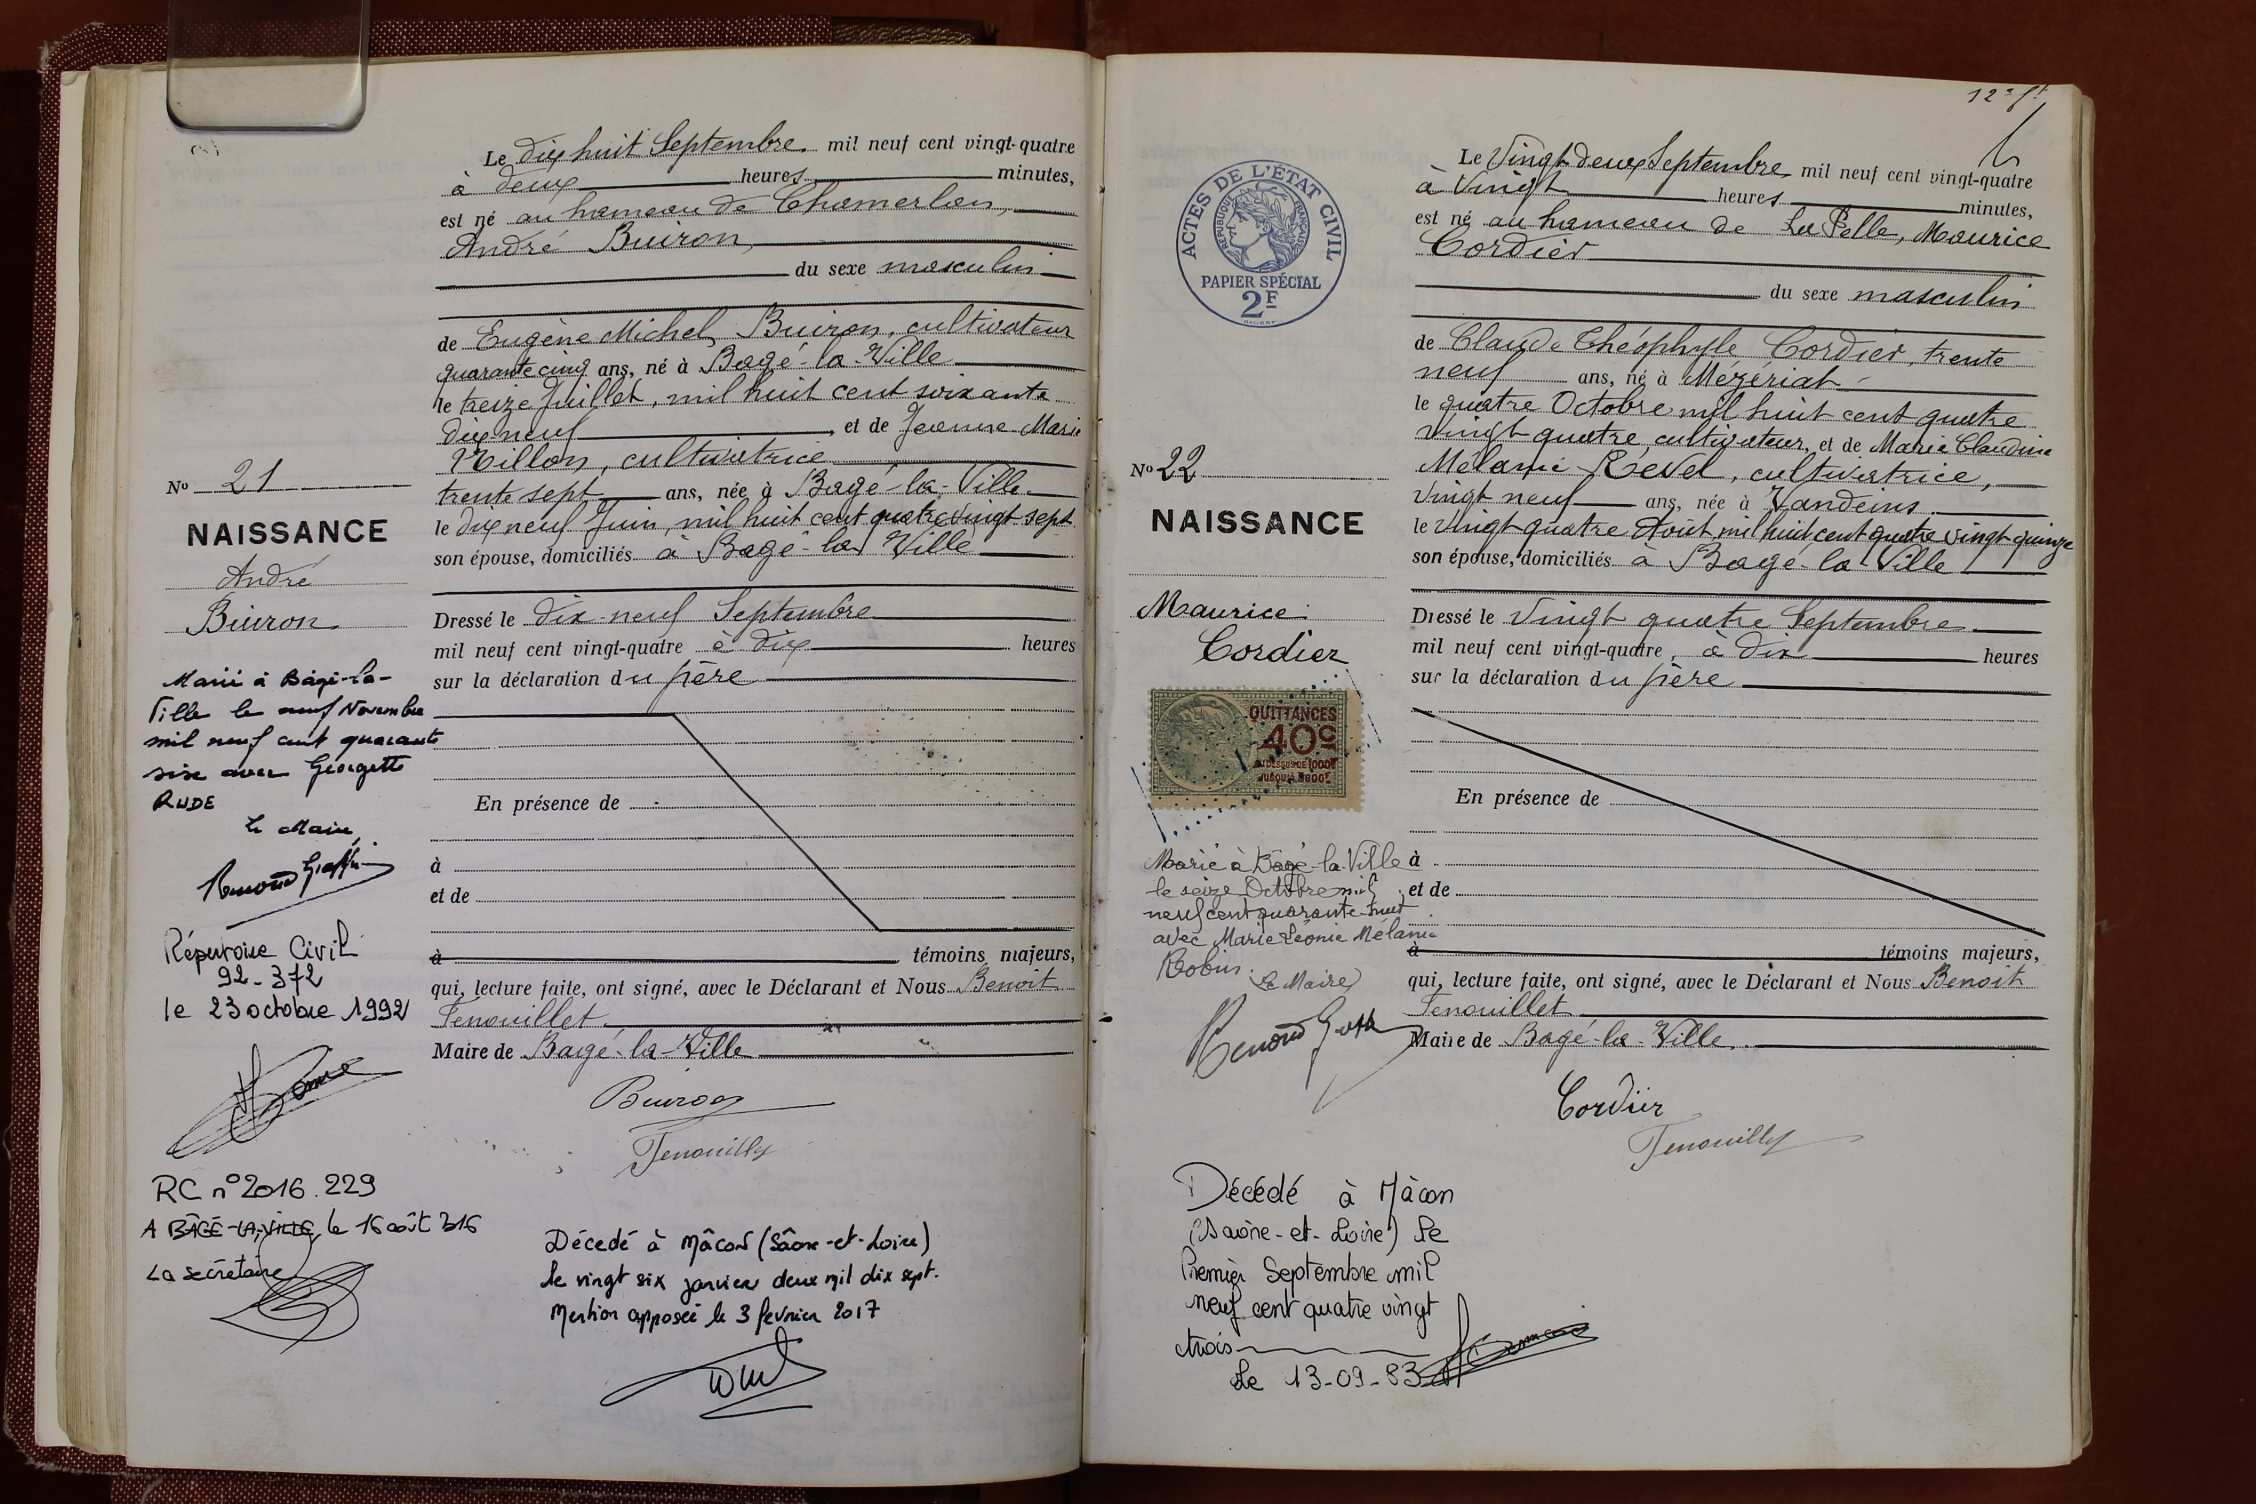 Le dix huit Septembre mil neuf cent vingt-quatre
à deux heures minutes,
est né au hameau de Chamerlan,
André Buiron,
du sexe masculin
de Eugène Michel Buiron, cultivateur
quarante cinq ans, né à Bagé-la-Ville
le treize Juillet, mil huit cent soixante
dix neuf, et de Jeanne Marie
cultivatrice
trente sept ans, née à Bagé-la-Ville
le dix neuf Juin, mil huit cent quatre vingt sept
son épouse, domiciliés à Bagé-la-Ville
Dressé le dix neuf Septembre
mil neuf cent vingt-quatre à dix heures
sur la déclaration du père
En présence de
à
et de
à témoins majeurs,
qui, lecture faite, ont signé, avec le Déclarant et Nous Benoit
Fenouillet
Maire de Bagé-la-Ville
Buiron
No 21
NAISSANCE
André
Buiron
Marié à Bâgé-la-
Ville le neuf Novembre
mil neuf cent quarante
six avec Georgette
RUDE
Le Maire,
Répertoire Civil
92-372
le 23 octobre 1992
RC n° 2016.229
A BÂGÉ-LA-VILLE, le 16 août 2016
La secrétaire
Décédé à Mâcon (Sâone-et-Loire)
le vingt six janvier deux mil dix sept.
Mention apposée le 3 février 2017
12e ft
ACTES DE L'ÉTAT CIVIL
RÉPUBLIQUE FRANÇAISE
PAPIER SPÉCIAL
2F
Le Vingt deux Septembre mil neuf cent vingt-quatre
à Vingt heures minutes,
est né au hameau de La Pelle, Maurice
Cordier
du sexe masculin
de Claude Théophyle Cordier, trente
neuf ans, né à Mézériat
le quatre Octobre mil huit cent quatre
vingt quatre, cultivateur, et de Marie Claudine
Mélanie Revel, cultivatrice,
Vingt neuf ans, née à Vandeins
le vingt quatre Août mil huit cent quatre vingt quinze
son épouse, domiciliés à Bagé-la-Ville
Dressé le Vingt quatre Septembre
mil neuf cent vingt-quatre, à dix heures
sur la déclaration du père
En présence de
à
et de
à témoins majeurs,
qui, lecture faite, ont signé, avec le Déclarant et Nous Benoit
Fenouillet
Maire de Bagé-la-Ville
Cordier
No 22
NAISSANCE
Maurice
Cordier
QUITTANCES
40c
AU DESSUS DE 1000F
Marié à Bâgé-la-Ville
le seize Octobre mil
neuf cent quarante-huit
avec Marie Léonie Mélanie
Robin.
Le Maire
Décédé à Mâcon
(Saône-et-Loire) le
Premier Septembre mil
neuf cent quatre vingt
trois
Le 13-09-83